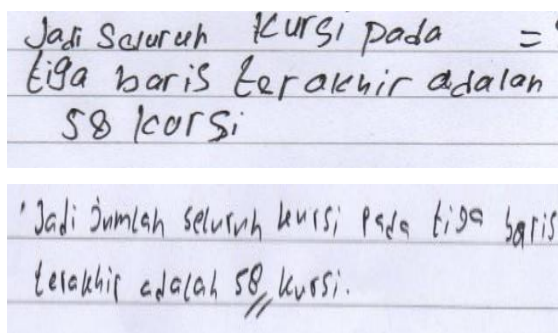 Jadi Seluruh Kursi pada =
tiga baris terakhir adalah
58 kursi
Jadi Jumlah seluruh kursi pada tiga baris
terakhir adalah 58 kursi.